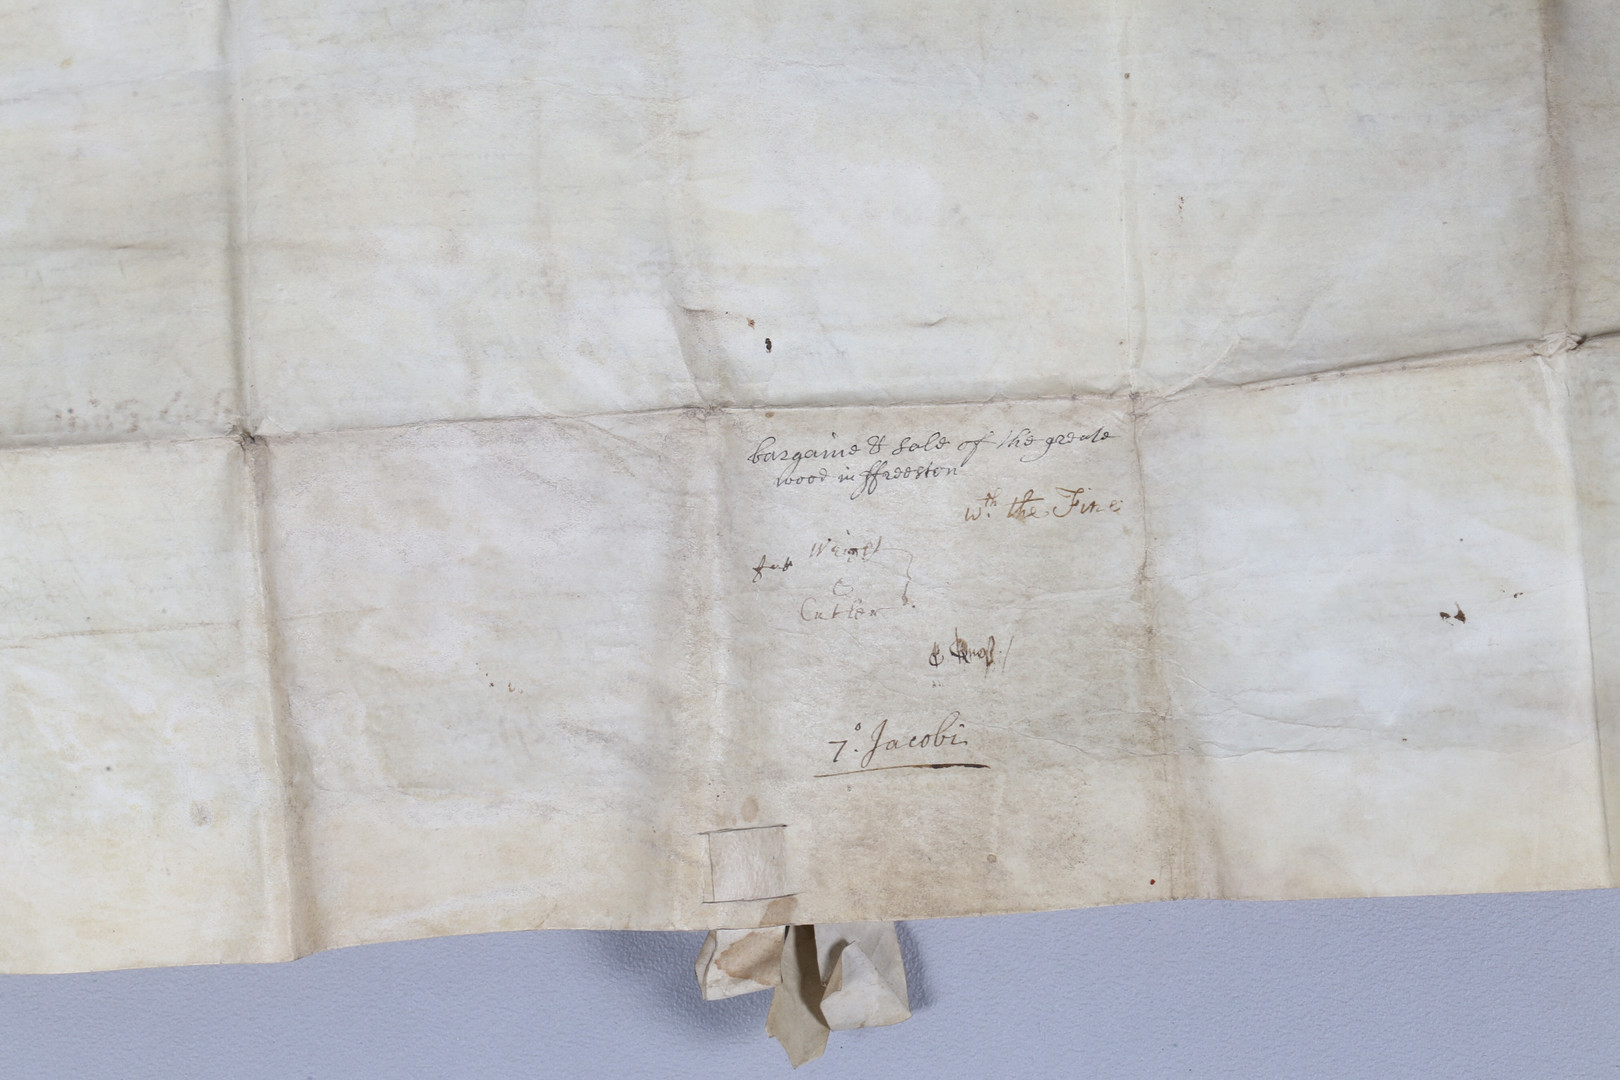 bargaine & sale of the greate
wood in ffreeston
wth. the Fine
Cutler
7o. Jacobi